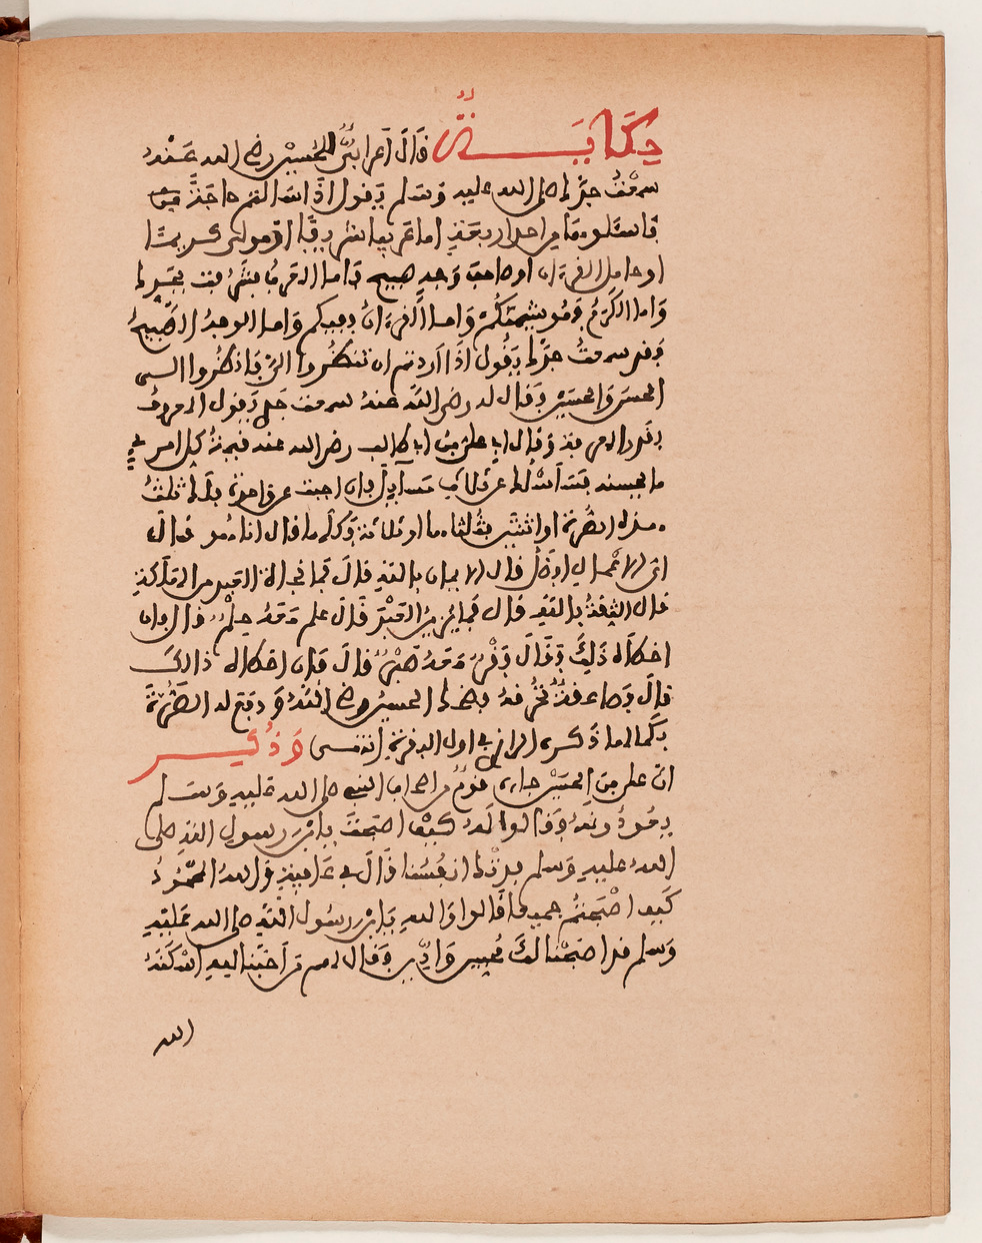 حِكَايَةٌ قَالَ أعرابيٌّ للحُسَيْن رضي الله عَنْهُ
سمعْتُ جدّك صلى الله عليه وَسَلم يَقول اذَا سَالتم حاجَةً
فاسْئَلوها من احد اربعةٍ اما عربيا شريفا او مولى كريمًا
او حامل القرءان او صاحبَ وَجهٍ صبيح فاما العَربُ بشرفت بجدك
وَاما الكَرَمُ فهُو شيمتكُمْ وَامـا القرءانُ ففيكم وَامـا الوجهُ الصَّبيحُ
فقد سمعتُ جدّك يَقُول اذَا اردتم ان تنظُروا اليَّ فَانظُروا الــى
الحسَن وَالحسَين فقال له رضي اللَّه عَنهُ سمعت جدي يَقول المعروفُ
بقدر المعرفة وَقال ابي علي بن ابي طالب رضي الله عنه قيمةُ كل امرئ
ما يحسنه فَسَأسْئلُك عن ثلاث مَسَآيِلَ فان اجبت عن واحدة فلك ثلثُ
هذه الصُّرة او اثنَتَيْن فثُلثاها او ثلاثة فكلها قال انا هو قـال
اي الاعْمال افضَلُ قال الايمان بالله قالَ فما نجاة العَبد من الهَلَكة
قال الثِّقةُ بالله قال فما يُزيّنُ العَبْدَ قَالَ علم مَعَهُ حِلْمٌ قال فان
اخطأه ذَلِكَ فقَالَ فَقْرٌ مَعَهُ صَبْرٌ قالَ فَان اخطاه ذَالِكَ
قالَ فصَاعقةٌ تُحْرقهُ فضحك الحسين رضي اللهُ عَنْهُ وَدفع له الصُّرَّةَ
بكمالها ذَكره الرازي في اول البقرة انتهـى وَذُكِــر
انّ علي بن الحسَيْن جاءه قومٌ من اصحاب النبي صلى الله عَليهِ وَسَلم
يعُودُونَهُ فقالوا لَهُ كَيْفَ اصْبَحتَ يا ابْن رسولِ اللهِ صلى
اللهُ عليهِ وَسلم فدتْك انفُسُنا قَالَ في عَافِيةٍ وَاللهُ المحْمُودُ
كَيف اصْبَحتُم جميعا قَالوا وَاللهِ يَا ابْن رسُول اللَّهِ صلى الله عَليهِ
وَسلم قد اصْبَحْنا لكَ مُحِبين وَادِّين فقَال لهم مَن اَحَبَّنا للهِ اسْكَنَهُ
الله